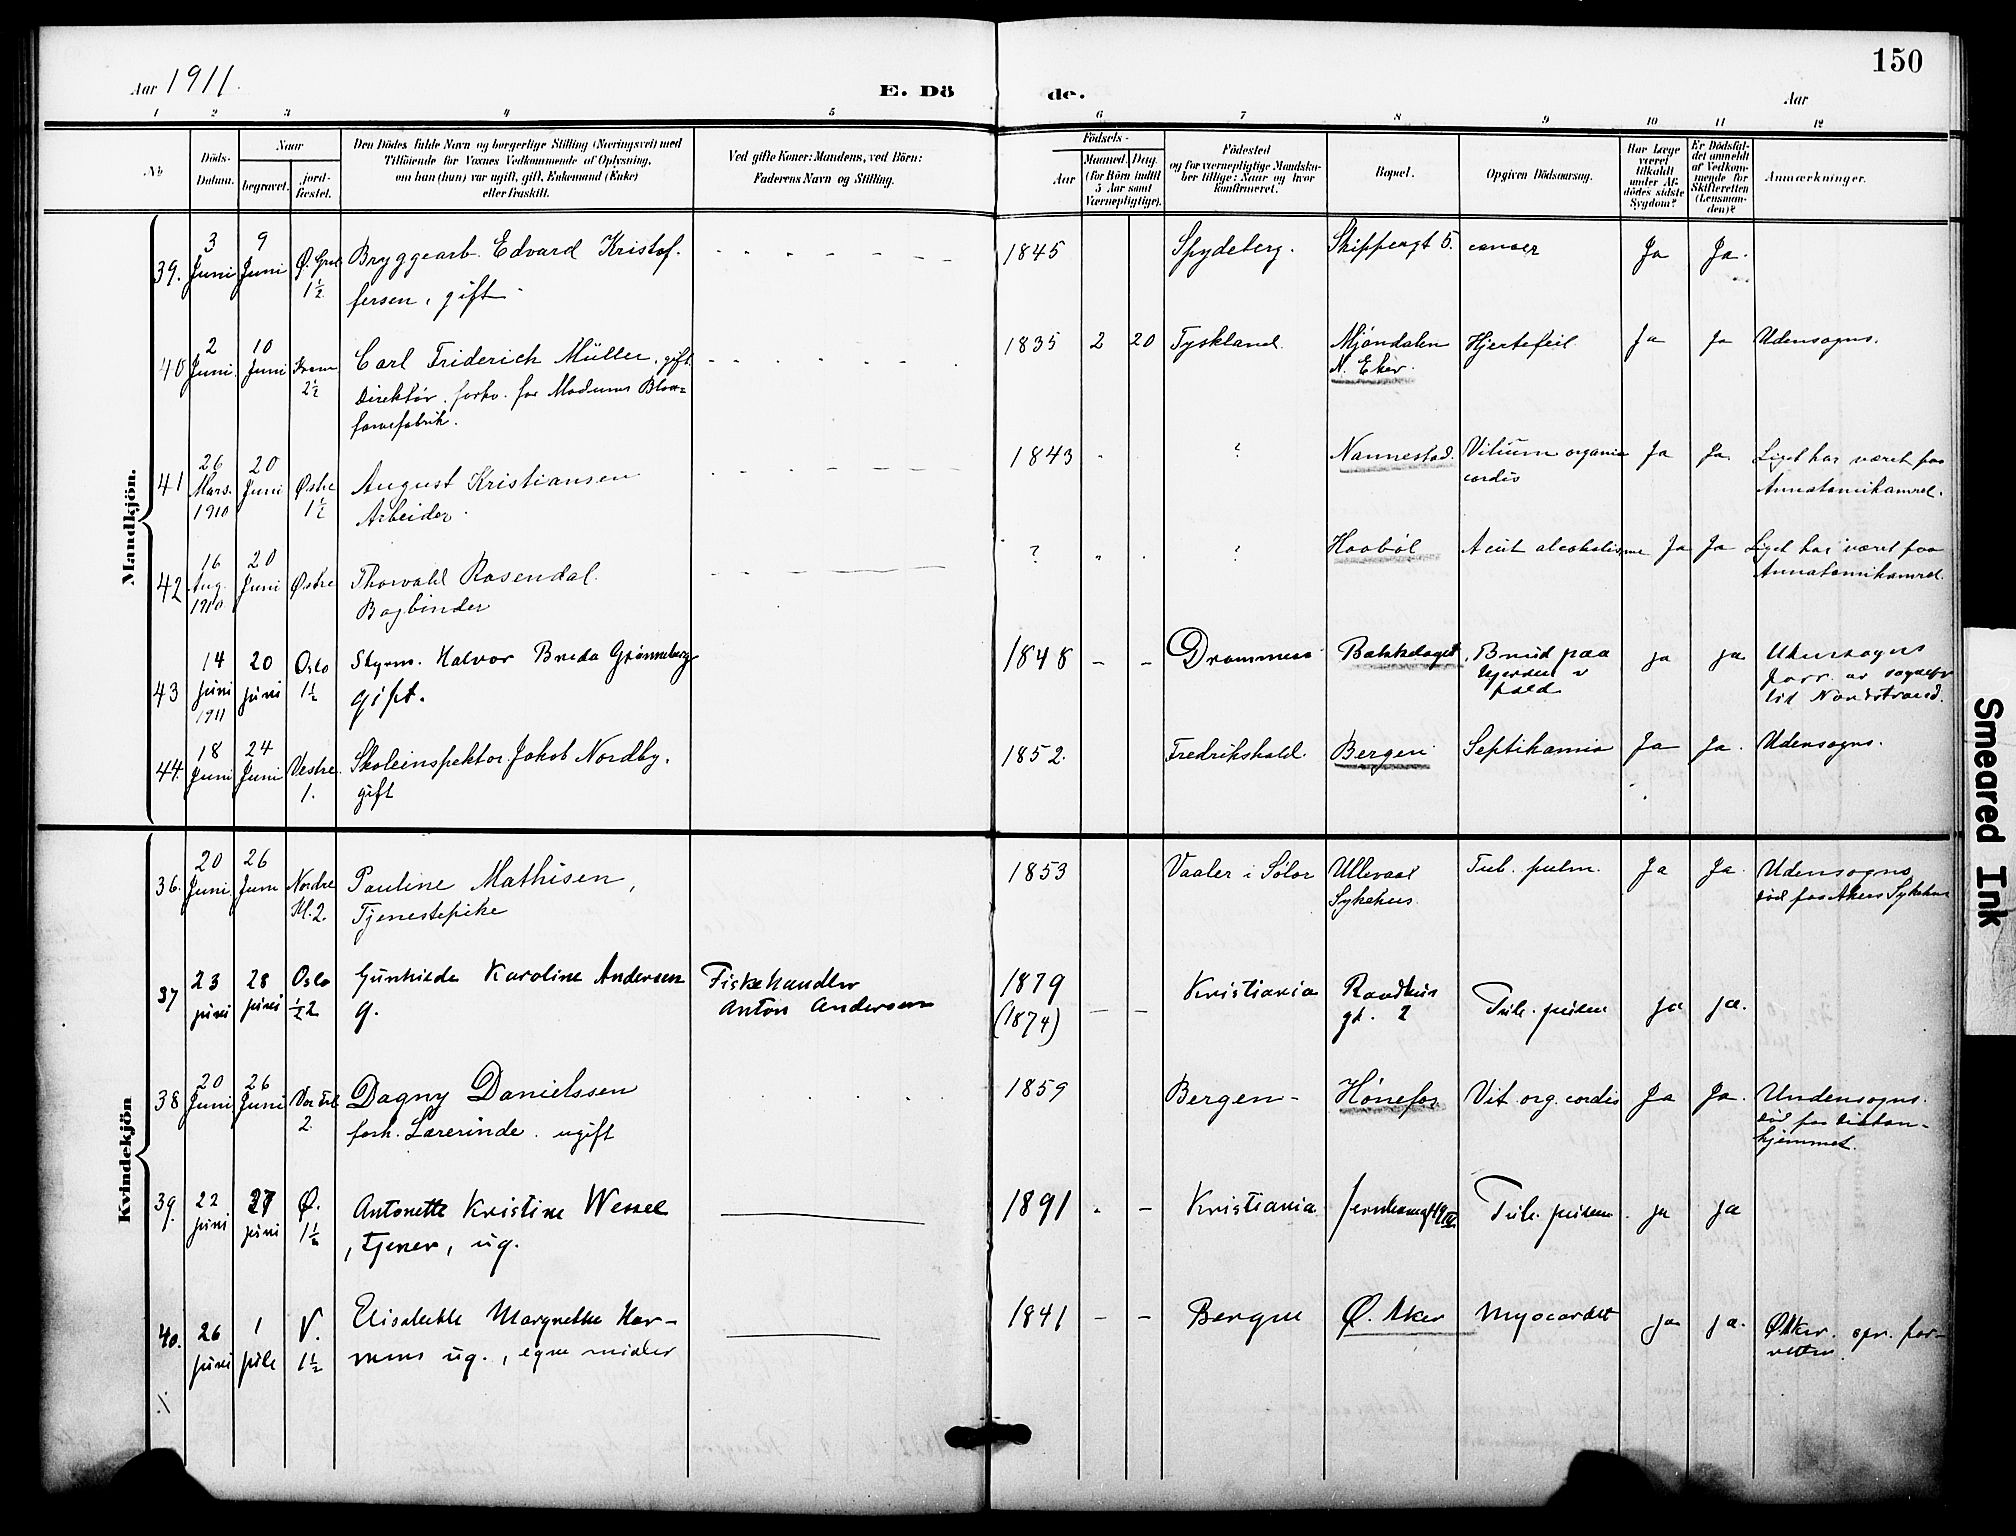 150
Aar 1911.
E. Dö de.
Aar
1 2 3 4 5 6 7 8 9 10 11 12
No
Döds-Datum.
Naar
begravet.
jord-fæstet.
Den Dödes fulde Navn og borgerlige Stilling (Næringsvei) med
Tilföiende for Voxnes Vedkommende af Oplysning,
om han (hun) var ugift, gift, Enkemand (Enke)
eller fraskilt.
Ved gifte Koner: Mandens, ved Börn:
Faderens Navn og Stilling.
Födsels-
Aar
Maaned. Dag.
(for Börn indtil
5 Aar samt
Værnepligtige).
Födested
og for værnepligtige Mandska-
ber tillige: Naar og hvor
konfirmeret.
Bopæl.
Opgiven Dödsaarsag.
Har Læge
været
tilkaldt
under Af-
dödes sidste
Sygdom?
Er Dödsfal-
det anmeldt
af Vedkom-
mende for
Skifteretten
(Lensman-
den)?
Anmærkninger.
Mandkjön.
39. 3 Juni 9 Juni 1½ Bryggearb. Edvard Kristof- 1845 Spydeberg. Skippergt 5. cancer Ja Ja.
fersen, gift
40 2 Juni. 10 Juni Krem 2½ Carl Friderich Müller, gift. 1835 2 20 Tyskland. Mjøndalen Hjertefeil Ja Ja Udensogns.
N. Eker.
Direktør, forhv. for Modums Blaa=
farvefabrik.
41 26 Mars. 1910 20 Juni Østre 1½ August Kristiansen 1843 ? Nannestad. Vitium organic Ja Ja. Liget har været paa
cordis
Annatomikamret.
Arbeider.
42 16 Aug. 1910 20 Juni Østre Thorvald Rosendal. ? ? Haabøl Acut alcoholisme Ja Ja Liget har været paa
Annatomikamret.
Bogbinder
43 14 juni 1911 20 juni Oslo 1½ Styrm. Halvor Breda Grønneberg 1848 - - Drammen Bækkelaget. Brud paa ja ja
gift.
til Nordstrand.
44. 18 Juni 24 Juni Vestre 1. Skoleinspektør Jakob Nordby. 1852. Fredrikshald. Bergen Septikæmia Ja Ja. Udensogns.
gift
Kvindekjön
36. 20 Juni 26 Juni Nordre Kl. 2. Pauline Mathisen, 1853 Vaaler i Solør Ullevaal Tub. pulm. Ja Ja. Udensogns,
Sykehus.
død paa Akers Sykehus
Tjenestepike
37 23 juni 28 juni Oslo ½2 Gunhilde Karoline Andersen Fiskehandler 1879 Kristiania Raadhus Tub. pulm ja ja.
g. Anton Andersen (1874) - - gt. 2
38 20 Juni 26 Juni 2 Dagny Danielssen 1859 Bergen - Hønefos Vit. org. cordis Ja Ja. Undensogns.
forh. Lærerinde. ugift
hjemmet.
39. 22 juni 27 juni Ø. 1½ Antonette Kristine Wessel 1891 - Kristiania Tub. pulm. ja ja
, tjener, ug.
40. 26 juni 1 jule V. 1½ Elisabeth Margrethe Har- 1841 - - Bergen Ø. Aker Myocardit ja ja. Ø Aker. spr. for-
mens ug., egne midler retten.
Smeared Ink